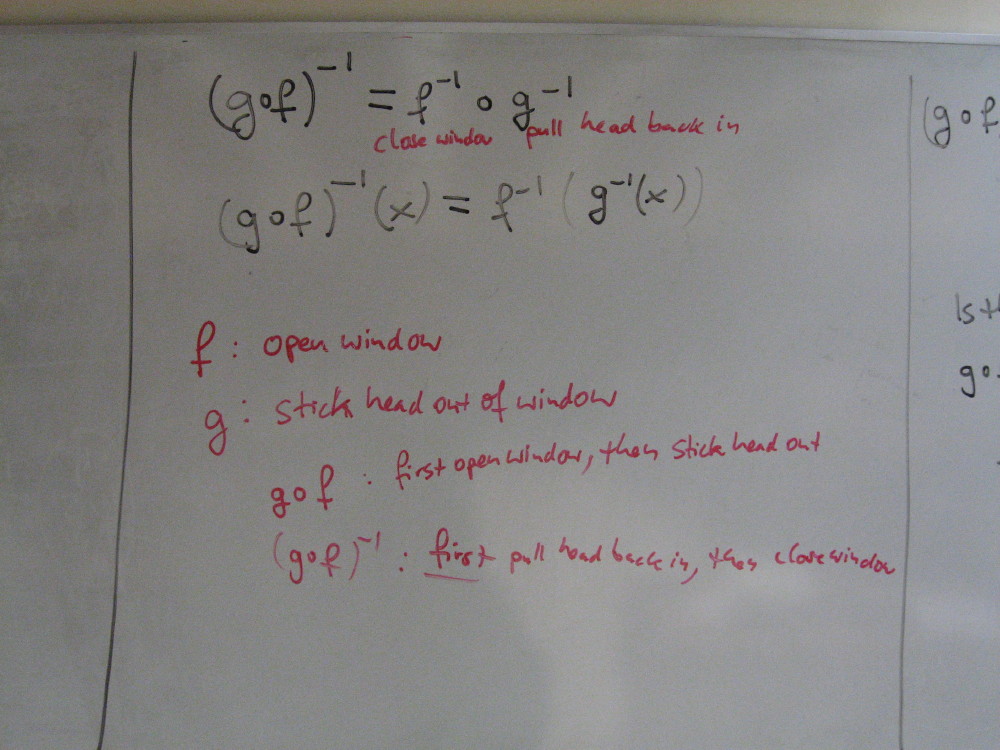 (g∘f)⁻¹ = f⁻¹ ∘ g⁻¹
close window pull head back in
(g∘f)⁻¹(x) = f⁻¹(g⁻¹(x))
f : open window
g : stick head out of window
g∘f : first open window, then stick head out
(g∘f)⁻¹ : first pull head back in, then close window
(g∘f
Is th
go